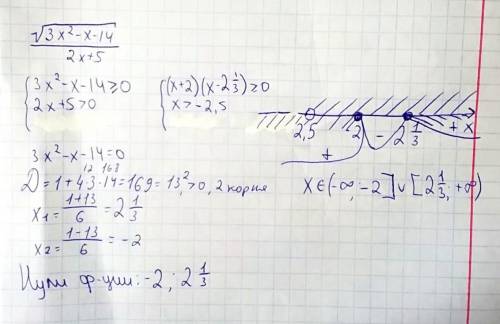 √3x²-x-14
2x+5
{3x²-x-14≥0
2x+5>0
{(x+2)(x-2 1/3)≥0
x>-2,5
2,5 -2 - 2 1/3 + x
+
3x²-x-14=0
12 168
D=1+4·3·14=169=13²>0, 2 корня
x₁=(1+13)/6=2 1/3
x₂=(1-13)/6=-2
X∈(-∞,-2]∪[2 1/3;+∞)
Нули ф-ции: -2; 2 1/3